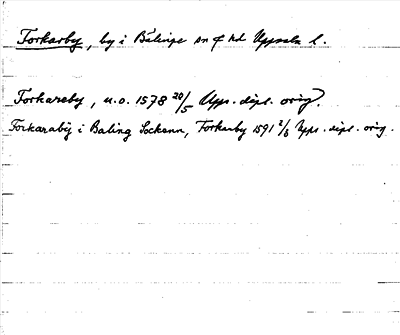 Forkarby, by i Bälinge sn o hd Uppsala l.
Forkareby, u.o. 1578 20/5 Upps. dipl. orig.
Forkarabÿ i Baling Sockenn, Forkarby 1591 2/8 Upps. dipl. orig.